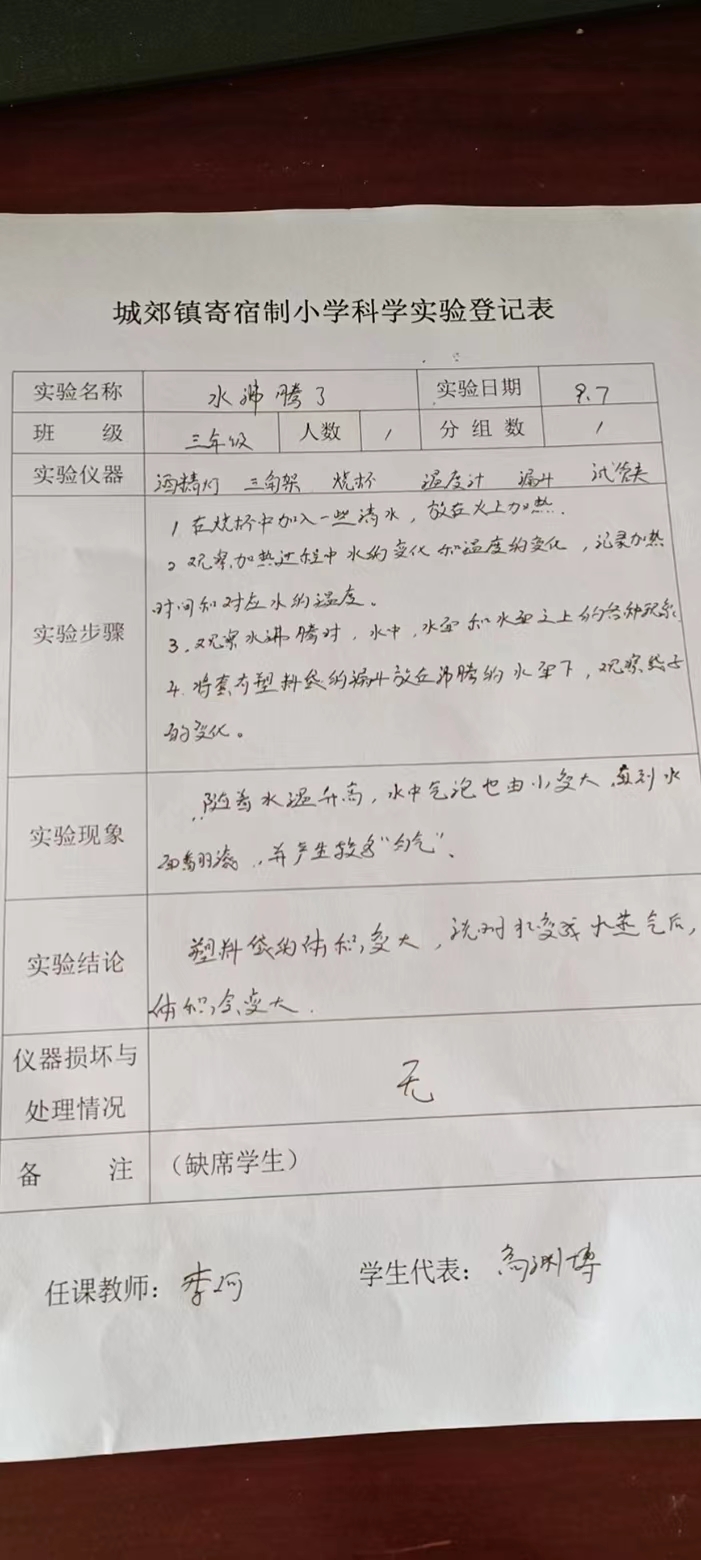 城郊镇寄宿制小学科学实验登记表
实验名称 水沸腾了 实验日期 9.7
班 级 三年级 人数 1 分组数 1
实验仪器 酒精灯 三角架 烧杯 温度计 漏斗 试管夹
实验步骤
1 在烧杯中加入一些清水，放在火上加热.
2 观察加热过程中水的变化和温度的变化，记录加热
时间和对应水的温度。
3.观察水沸腾时，水中，水面和水面之上的各种现象
4.将套有塑料袋的漏斗放在沸腾的水 下，观察 
的变化。
实验现象
随着水温升高，水中气泡也由小变大 直到水
面翻滚，并产生较多“白气”、
实验结论
塑料袋的体积变大，说明水变成水蒸气后，
体积会变大.
仪器损坏与
处理情况
无
备 注 （缺席学生）
任课教师：李 学生代表：高 博